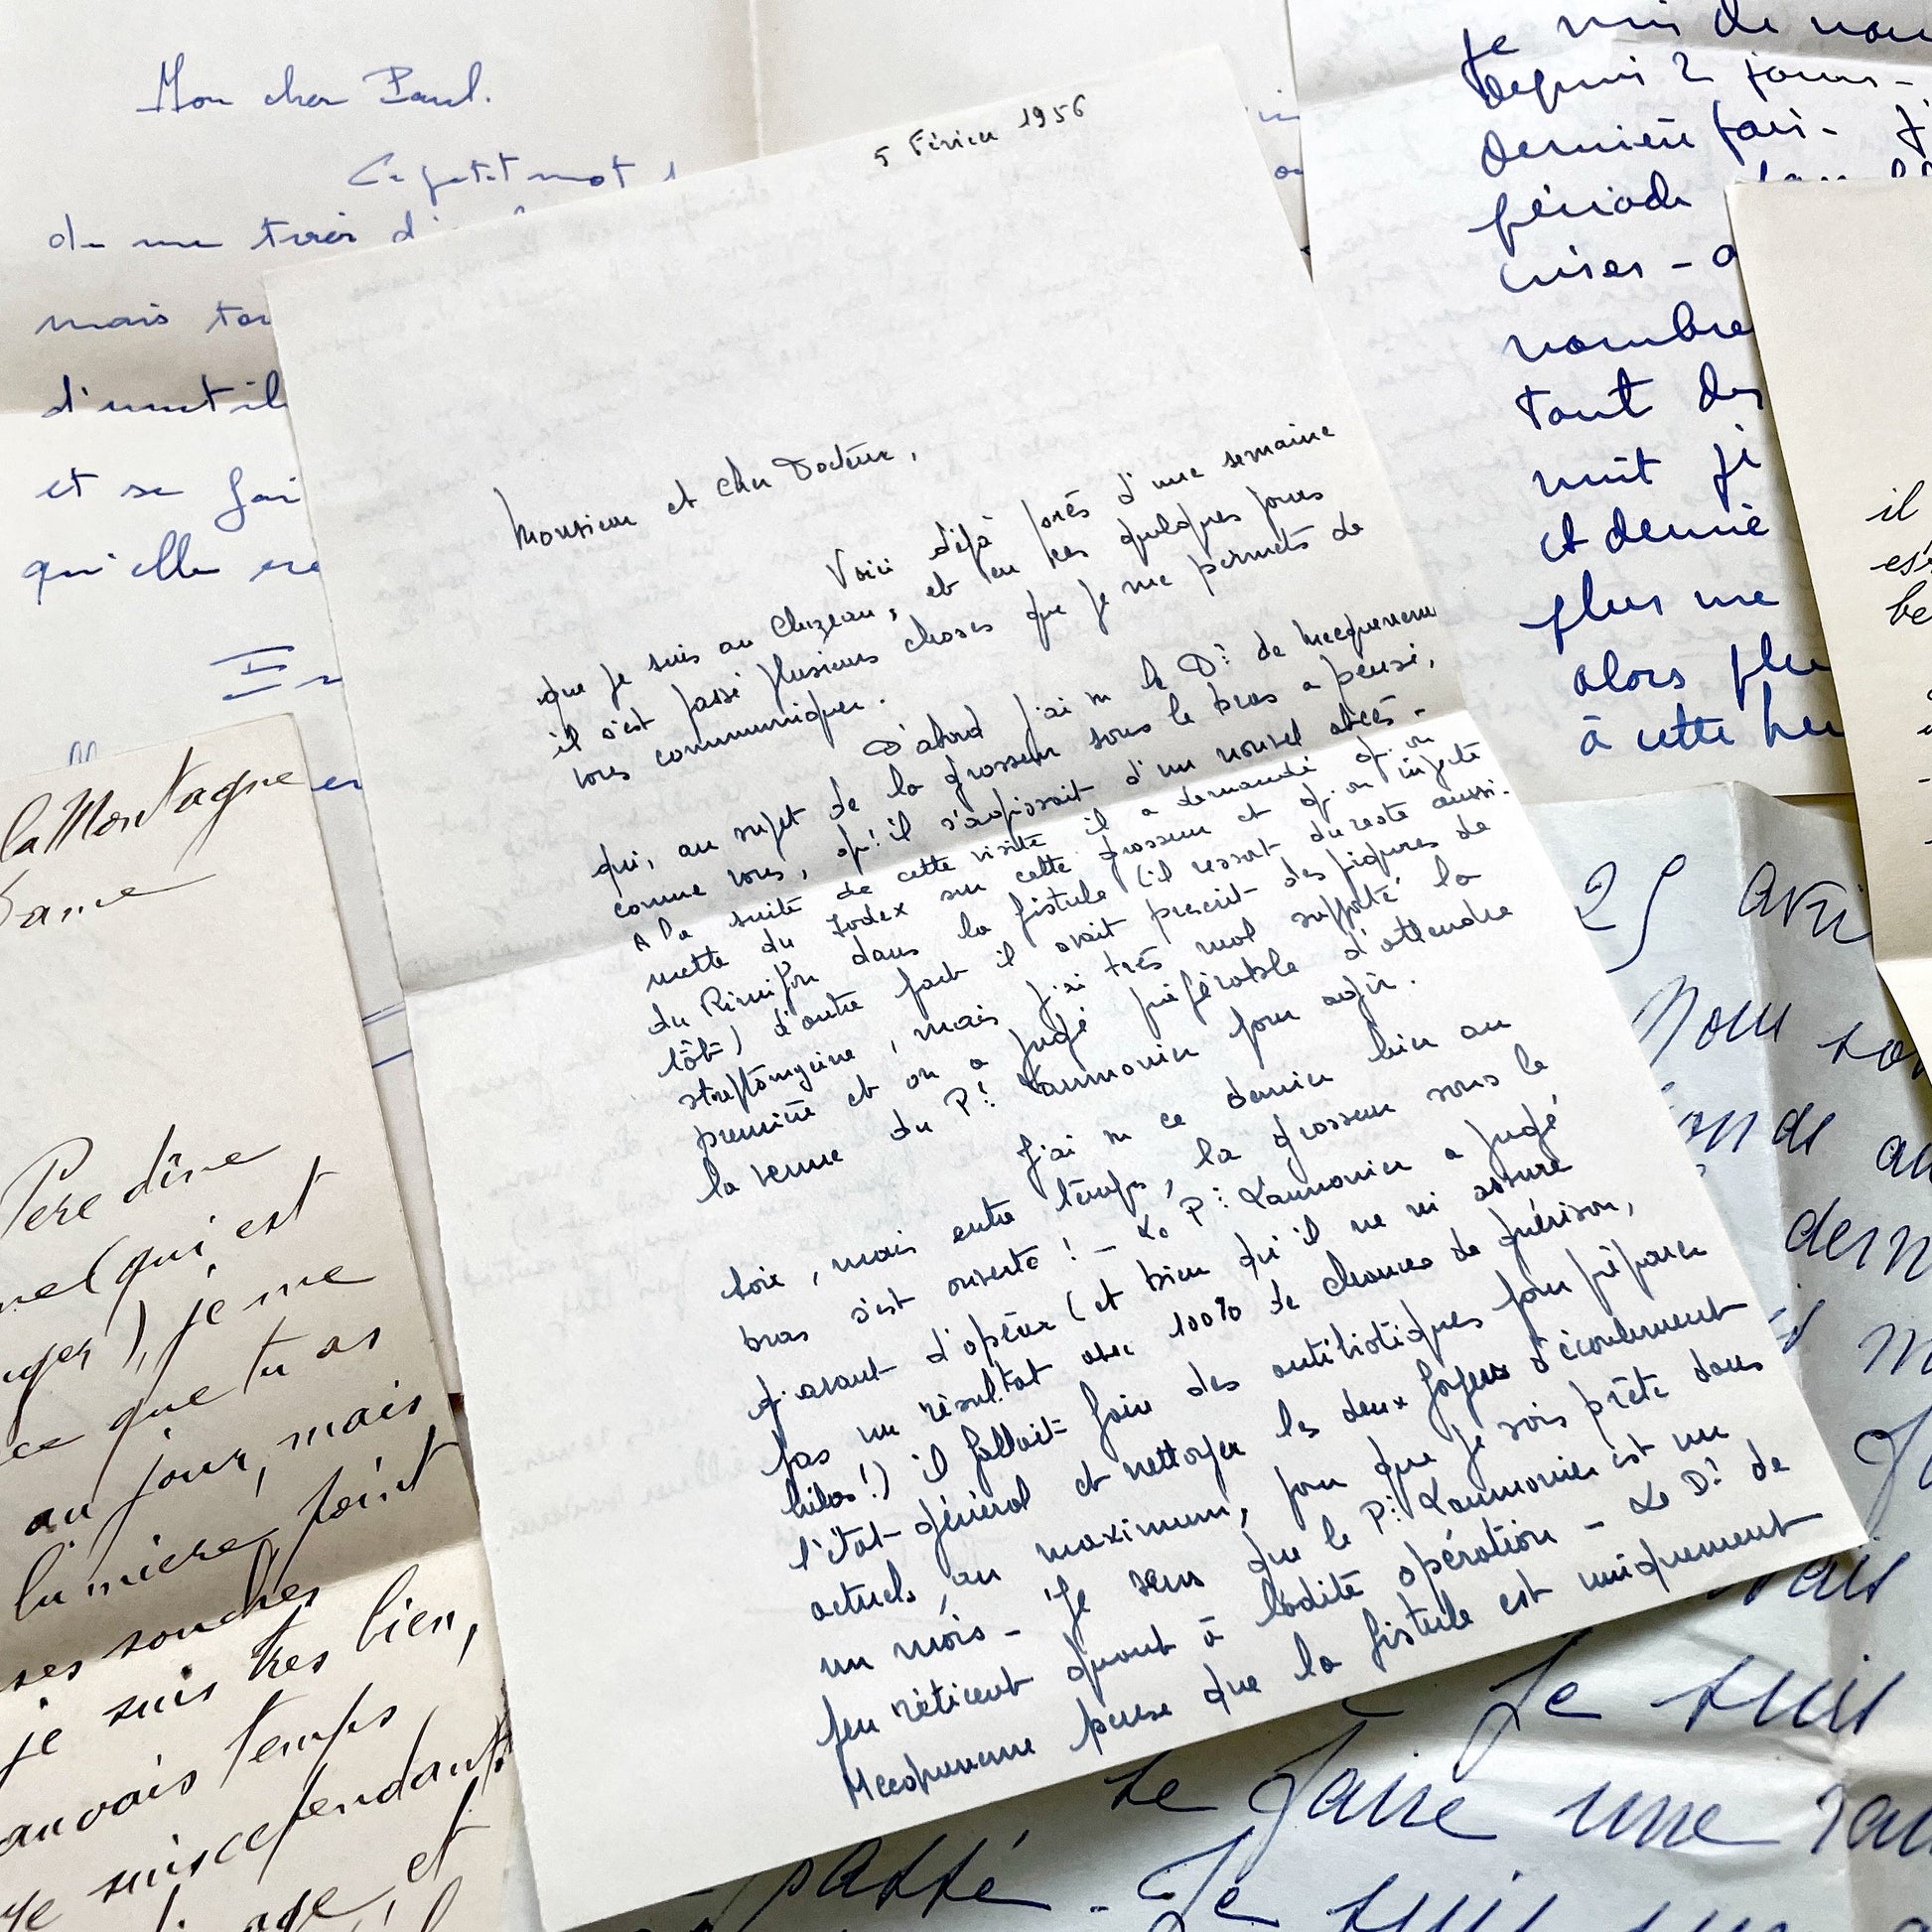 Mon cher Paul.
Ce petit mot
de me tirer d'
mais
d'inutil
et se fai
qu'elle
5 Février 1956
Monsieur et cher Docteur,
Voici déjà près d'une semaine
que je suis au Chizeau, et en ces quelques jours
il s'est passé plusieurs choses que je me permets de
vous communiquer.
D'abord j'ai vu le Dr de Mecquenem
qui, au sujet de la grosseur sous le bras a pensé,
comme vous, qu'il s'agissait d'un nouvel abcès -
A la suite de cette visite il a demandé qu'on
mette du Iodex sur cette grosseur et qu'on injecte
du Rimifon dans la fistule (il ressort du reste aussi-
tôt) d'autre part il avait prescrit des piqures de
streptomycine, mais j'ai très mal supporté la
première et on a jugé préférable d'attendre
la venue du Pr Laumonier pour agir.
J'ai vu ce dernier hier au
soir, mais entre temps, la grosseur sous le
bras s'est ouverte ! - Le Pr Laumonier a jugé
qu'avant d'opérer (et bien qu'il ne m'assure
pas un résultat avec 100% de chances de guérison,
hélas !) il fallait faire des antibiotiques pour préparer
l'état général et nettoyer les deux foyers d'écoulement
actuels, au maximum, pour que je sois prête dans
un mois - Je sens que le Pr Laumonier est un
peu réticent quant à ladite opération - Le Dr de
Mecquenem pense que la fistule est uniquement
Je de nou
depuis 2 jours -
dernière fois - J'
période
crises - a
nombre
tant des
nuit je
et demie
plus me
alors plu
à cette heu
il
es
be
la Montagne
Père dîne
nel (qui est
), je ne
ce que tu as
au jour, mais
lumière, point
ses souches
je suis très bien,
auvais temps
suis cependant
et
25 avri
Nous so
onde au
dern
Je suis
te faire une
passé - Je suis